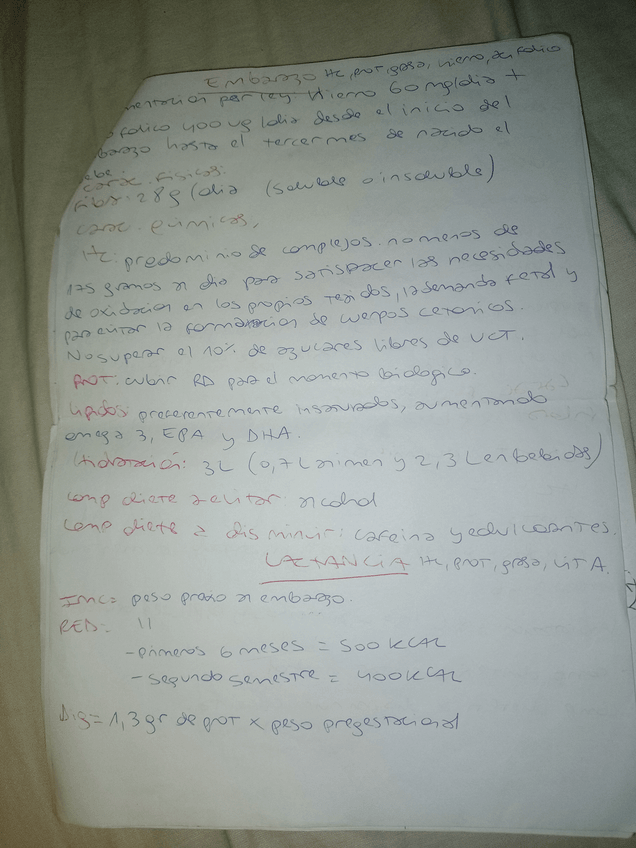 Embarzo Hc, prot, grasa, hierro, ac folico
mentacion por ley Hierro 60 mg/dia +
folico 400 ug/dia desde el inicio del
barzo hasta el tercer mes de nacido el
ebe.
carac. fisicas:
Fibra: 28 g/dia (soluble o insoluble)
carac. quimicas,
Hc: predominio de complejos. no menos de
175 gramos al dia para satisfacer las necesidades
de oxidacion en los propios tejidos, la demanda fetal y
para evitar la formacion de cuerpos cetonicos.
No superar el 10% de azucares libres de VCT.
PROT: cubrir RD para el momento biologico.
Lipidos: preferentemente insaturados, aumentando
omega 3, EPA y DHA.
Hidratación: 3L (0,7 L alimen y 2,3 L en bebidas)
comp diete a evitar: alcohol
comp diete a disminuir: cafeina y edulcorantes.
LACTANCIA Hc, prot, grasa, vit A.
IMC= peso previo al embarzo.
RED= 11
- primeros 6 meses = 500 KCAL
- segundo semestre = 400 KCAL
= 1,3 gr de prot x peso pregestacional